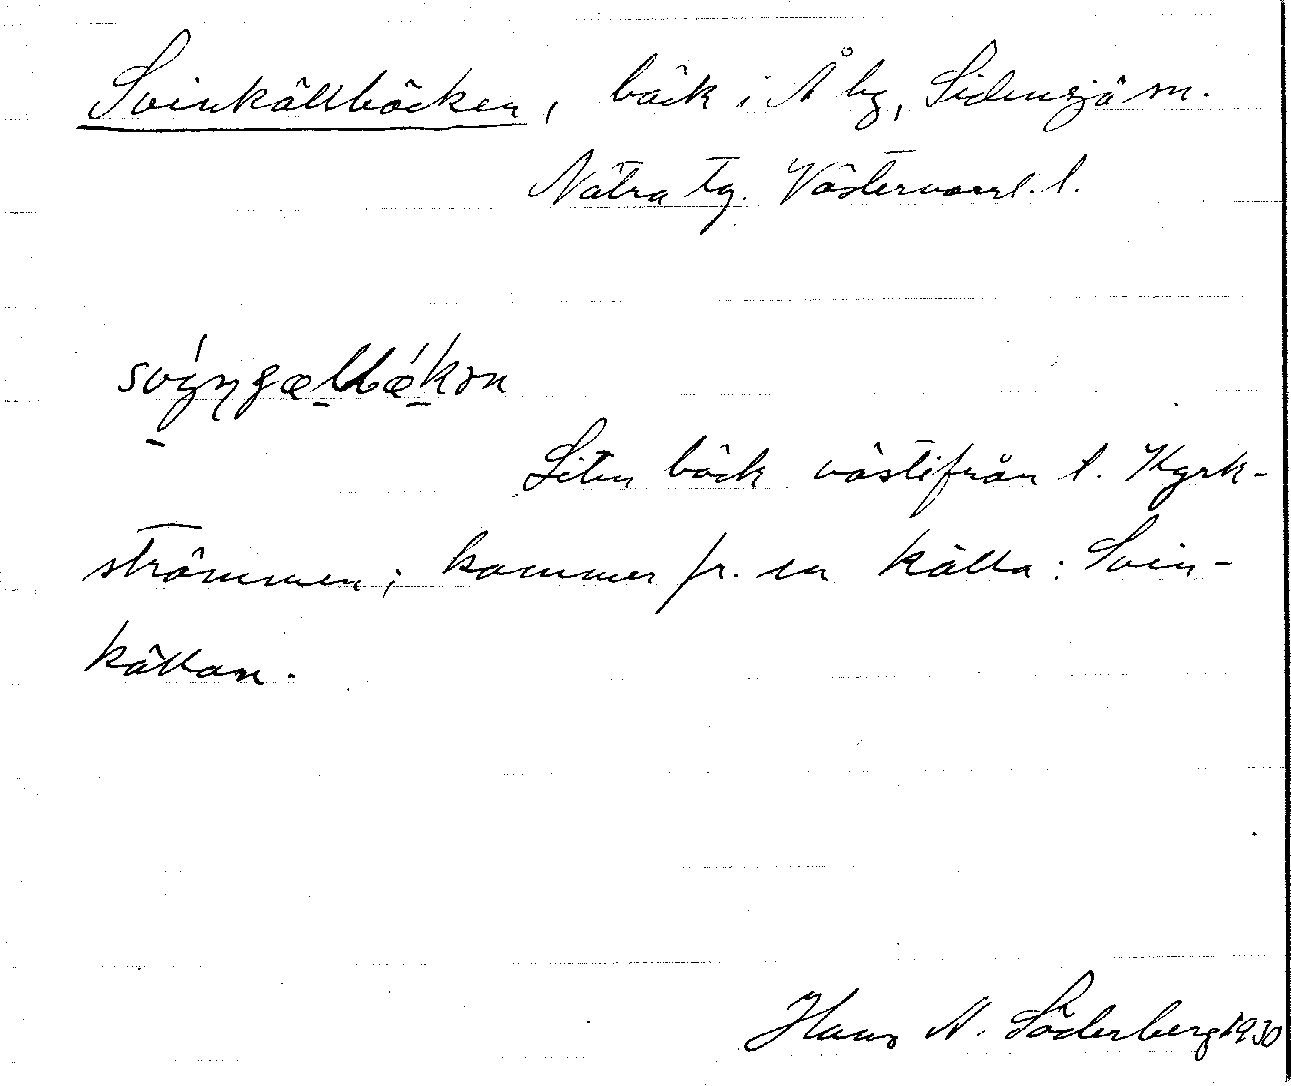 Svinkällbäcken, bäck i Å by, Sidensjö sn.
Nätra tg. Västernorrl. l.
svíŋgælbǽkən
Liten bäck västifrån t. Kyrk-
strömmen; kommer fr. en källa: Svin-
källan.
Hans N. Söderberg 1930